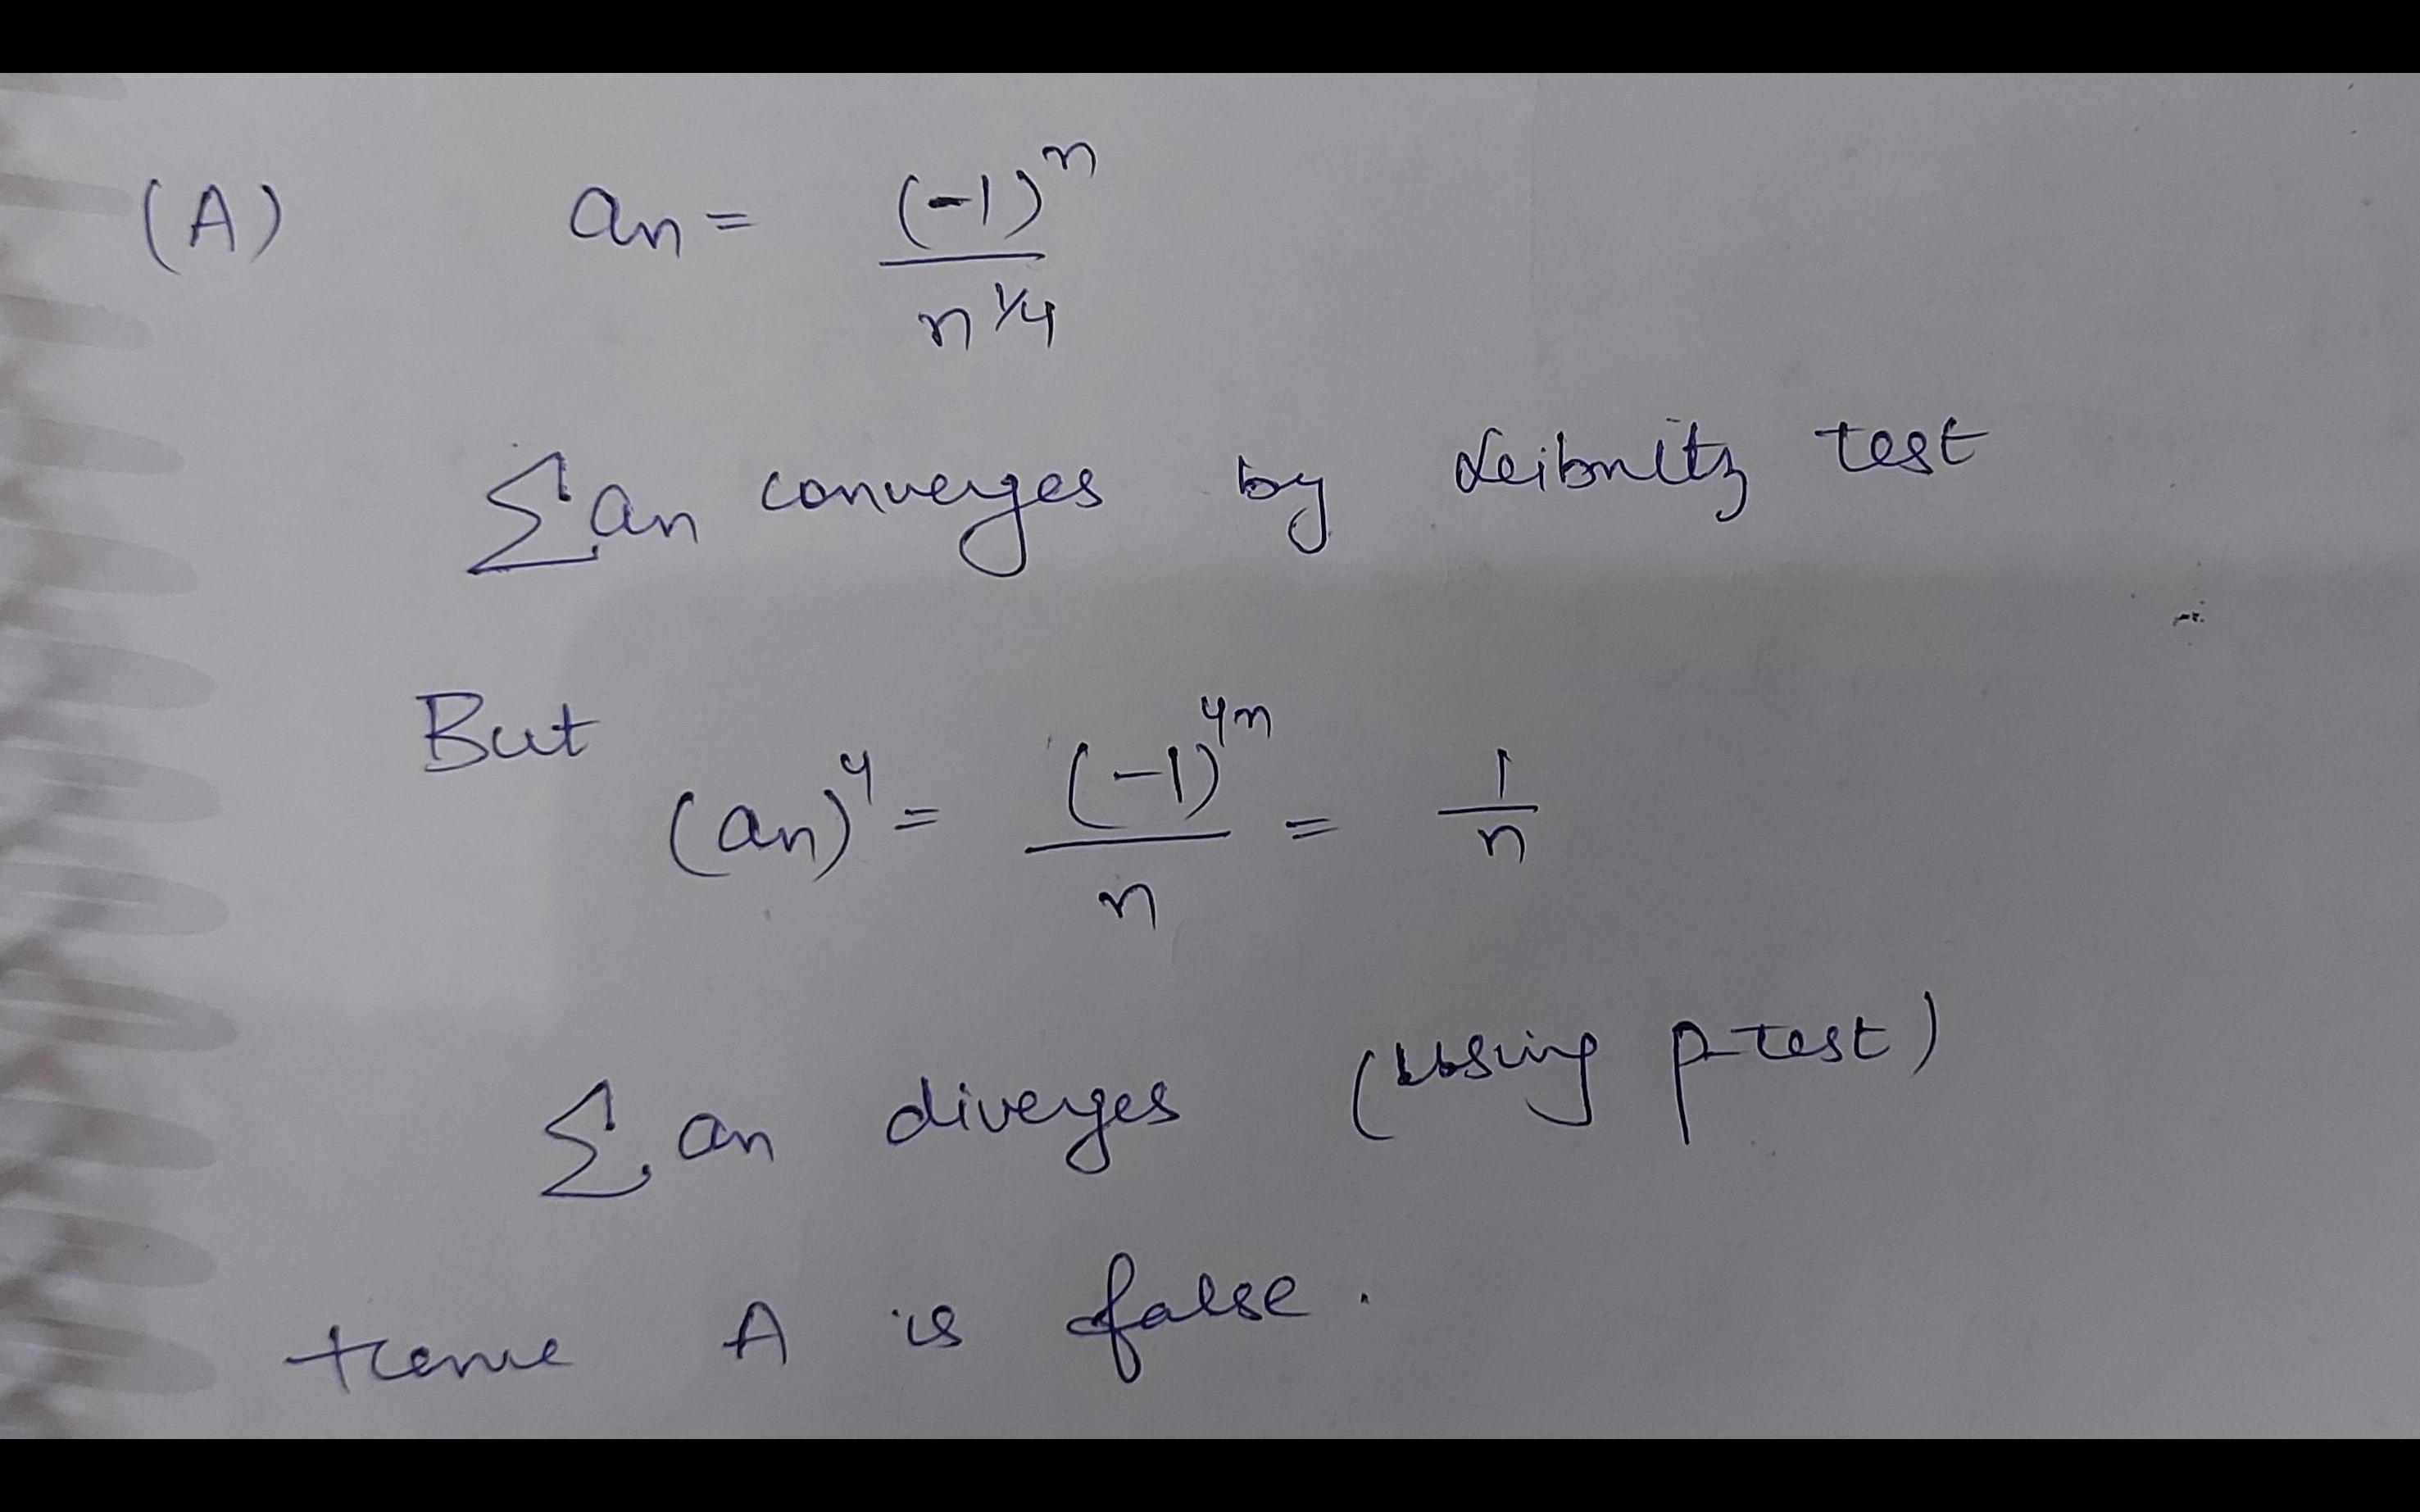 (A) an = (-1)^n / n^1/4
Σan converges by Leibnitz test
But (an)^4 = (-1)^4n / n = 1 / n
Σ an diverges (Using p-test)
Hence A is false.